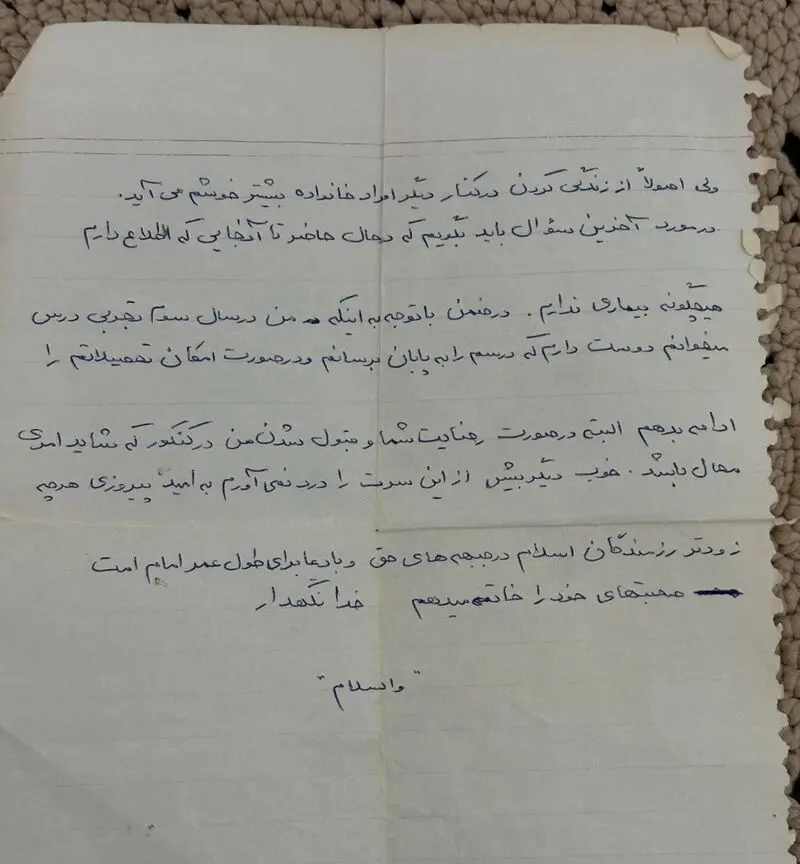 ولی اصولاً از زندگی کردن در کنار دیگر افراد خانواده بیشتر خوشم می آید.
در مورد آخرین سؤال باید بگویم که در حال حاضر تا آنجایی که اطلاع دارم
هیچگونه بیماری ندارم. در ضمن با توجه به اینکه من در سال سوم تجربی درس
میخوانم دوست دارم که درسم را به پایان برسانم و در صورت امکان تحصیلاتم را
ادامه بدهم البته در صورت رضایت شما و قبول شدن من در کنکور که شاید امری
محال باشد. خوب دیگر بیش از این سرت را درد نمی آورم به امید پیروزی هرچه
زودتر رزمندگان اسلام در جبهه های حق و با دعا برای طول عمر امام امت
صحبتهای خود را خاتمه میدهم خدا نگهدار
"والسلام"